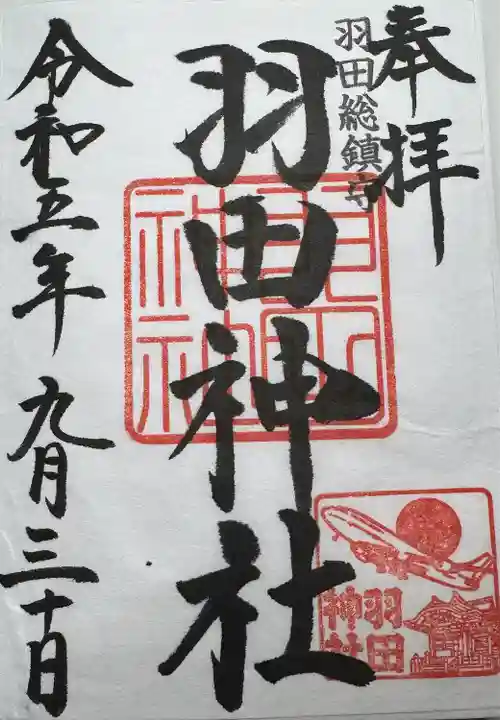 奉拝
羽田総鎮守
羽田神社
令和五年九月三十日
羽田
神社